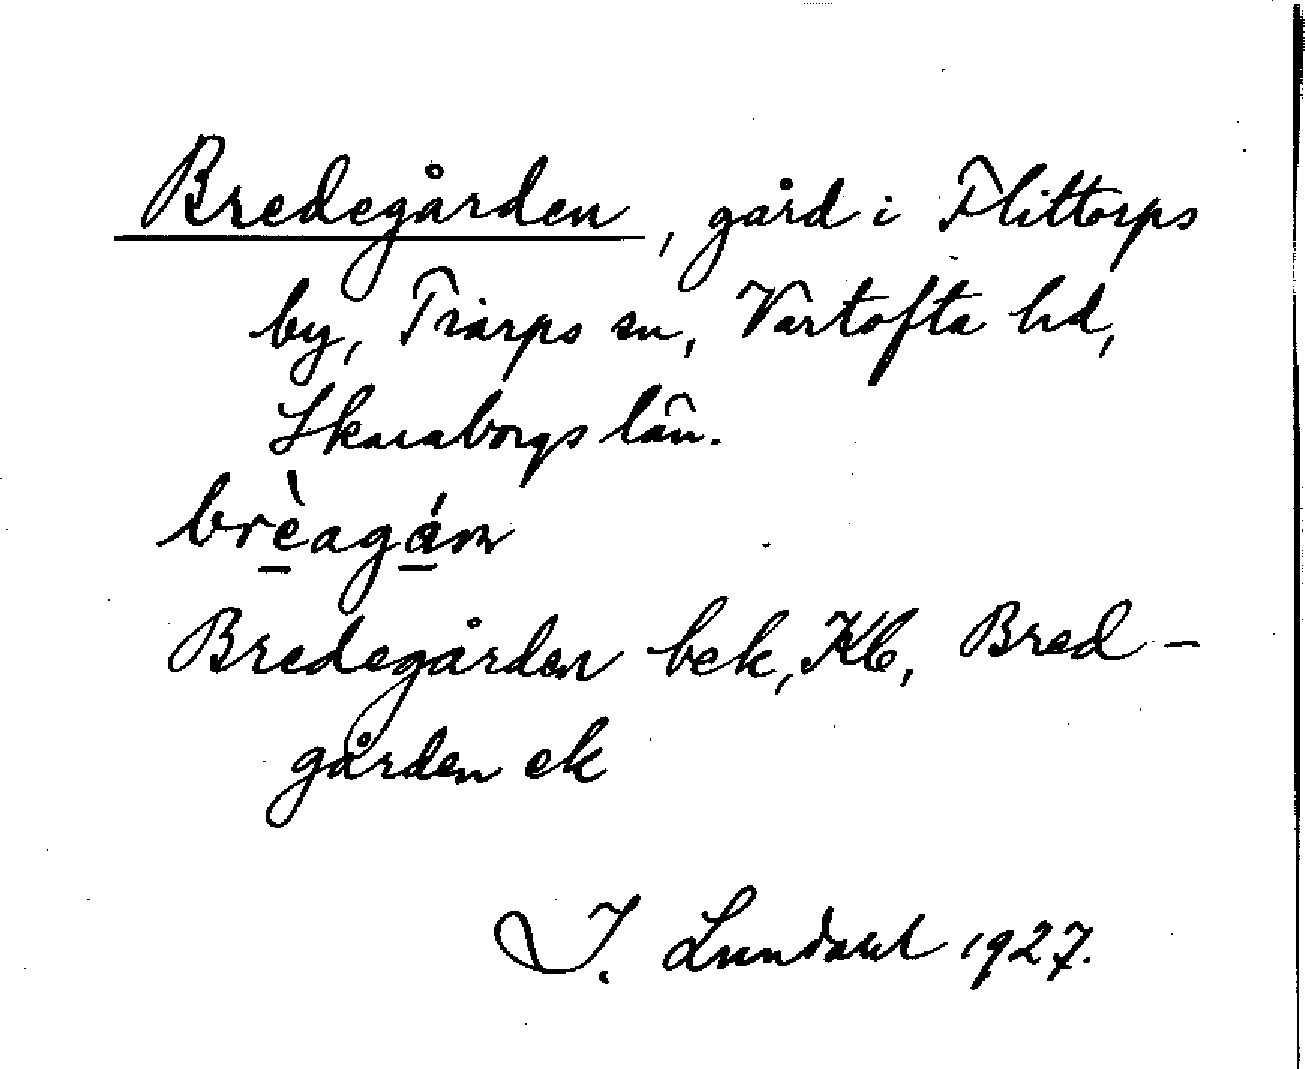 Bredegården, gård i Flittorps
by, Tiarps sn, Vartofta hd,
Skaraborgs län.
brèagán
Bredegården bek, Kb, Bred-
gården ek
I. Lundahl 1927.